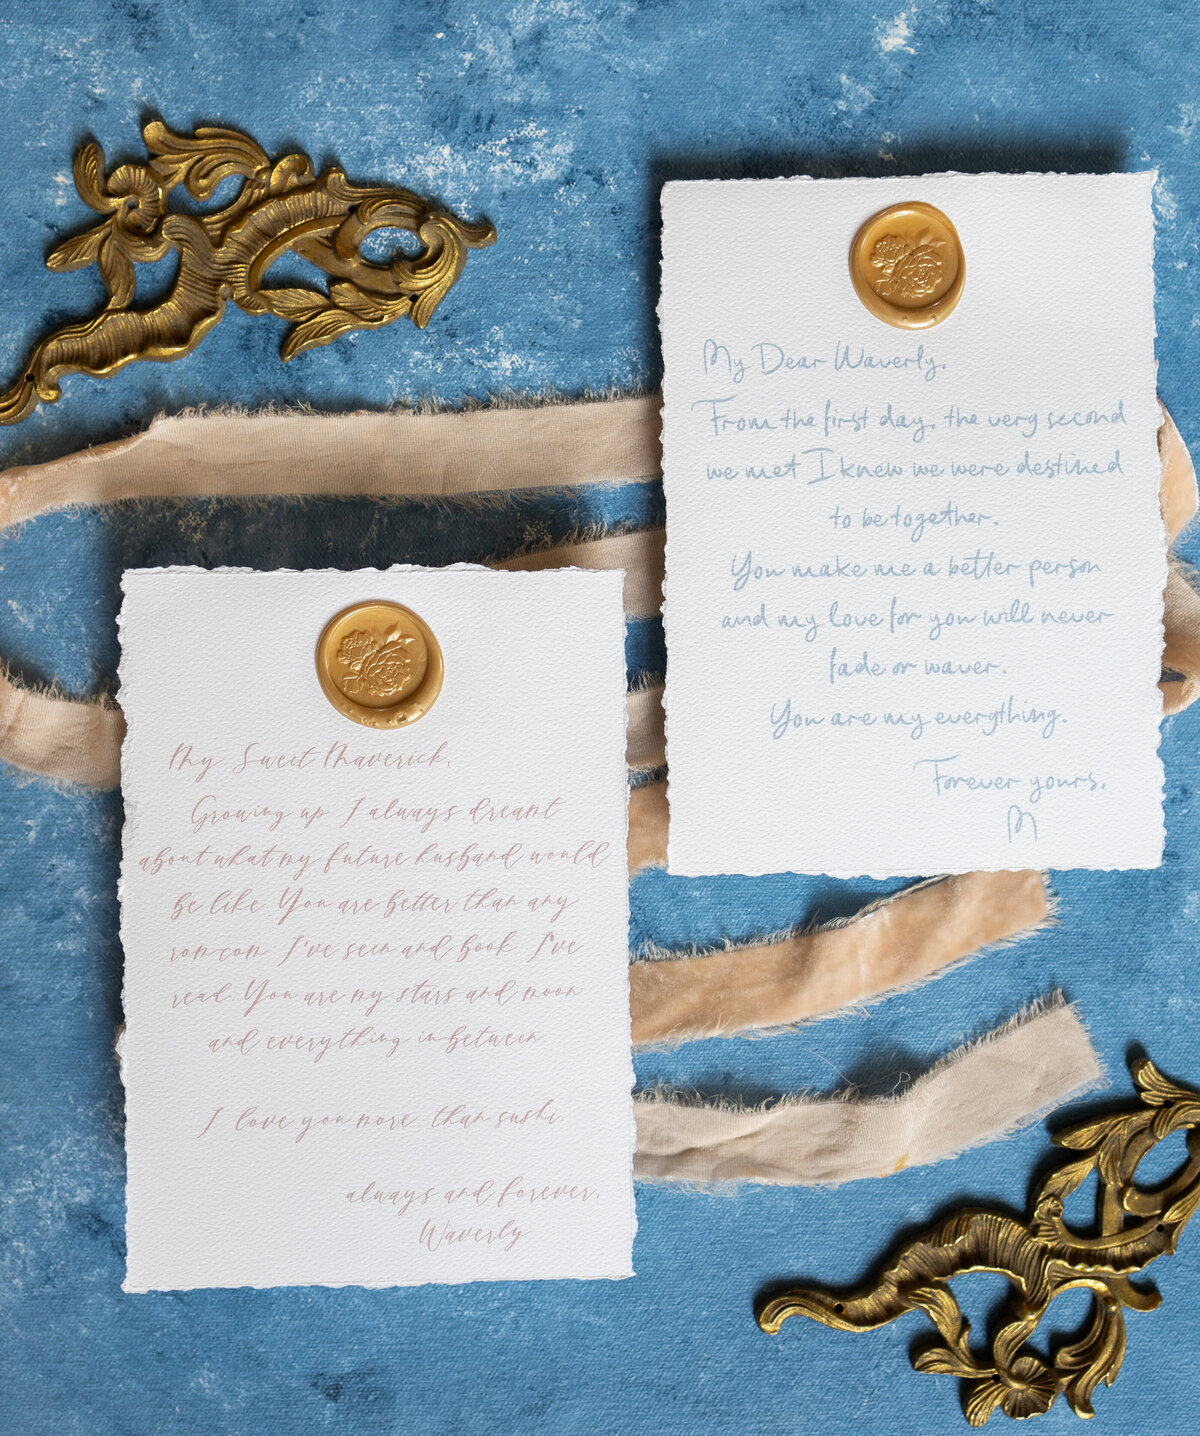 My Sweet Maverick,
Growing up I always dreamt
about what my future husband would
be like. You are better than any
rom com I've seen and book I've
read. You are my stars and moon
and everything in between.
I love you more than sushi.
always and forever,
Waverly
My Dear Waverly,
From the first day, the very second
we met I knew we were destined
to be together.
You make me a better person
and my love for you will never
fade or waver.
You are my everything.
Forever yours,
M